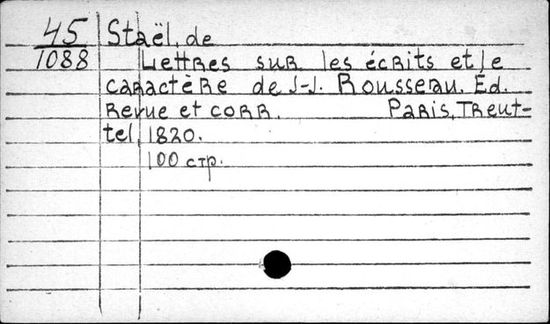 45 Staël, de
1088 Lettres sur les écrits et le
caractère de J.-J. Rousseau. Éd.
revue et corr. Paris, Treut-
tel, 1820.
100 стр.